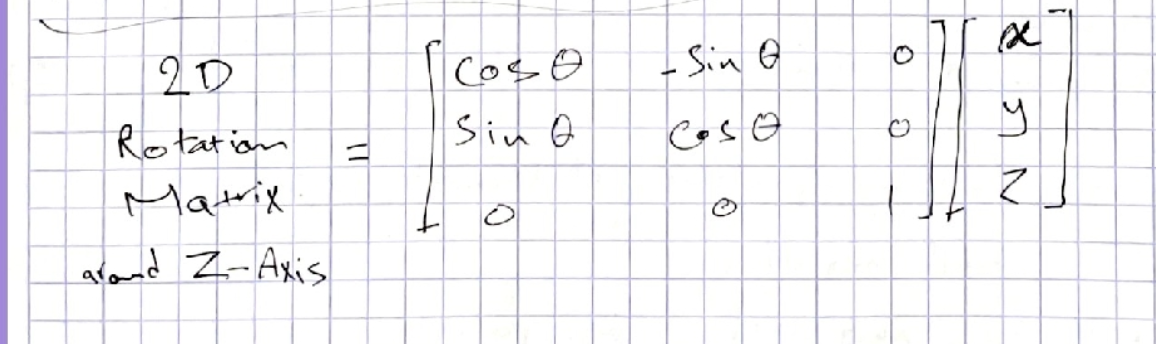 2D
Rotation
Matrix
around Z-Axis
=
[cos θ -Sin θ 0] [x]
[Sin θ cos θ 0] [y]
[0 0 1] [z]